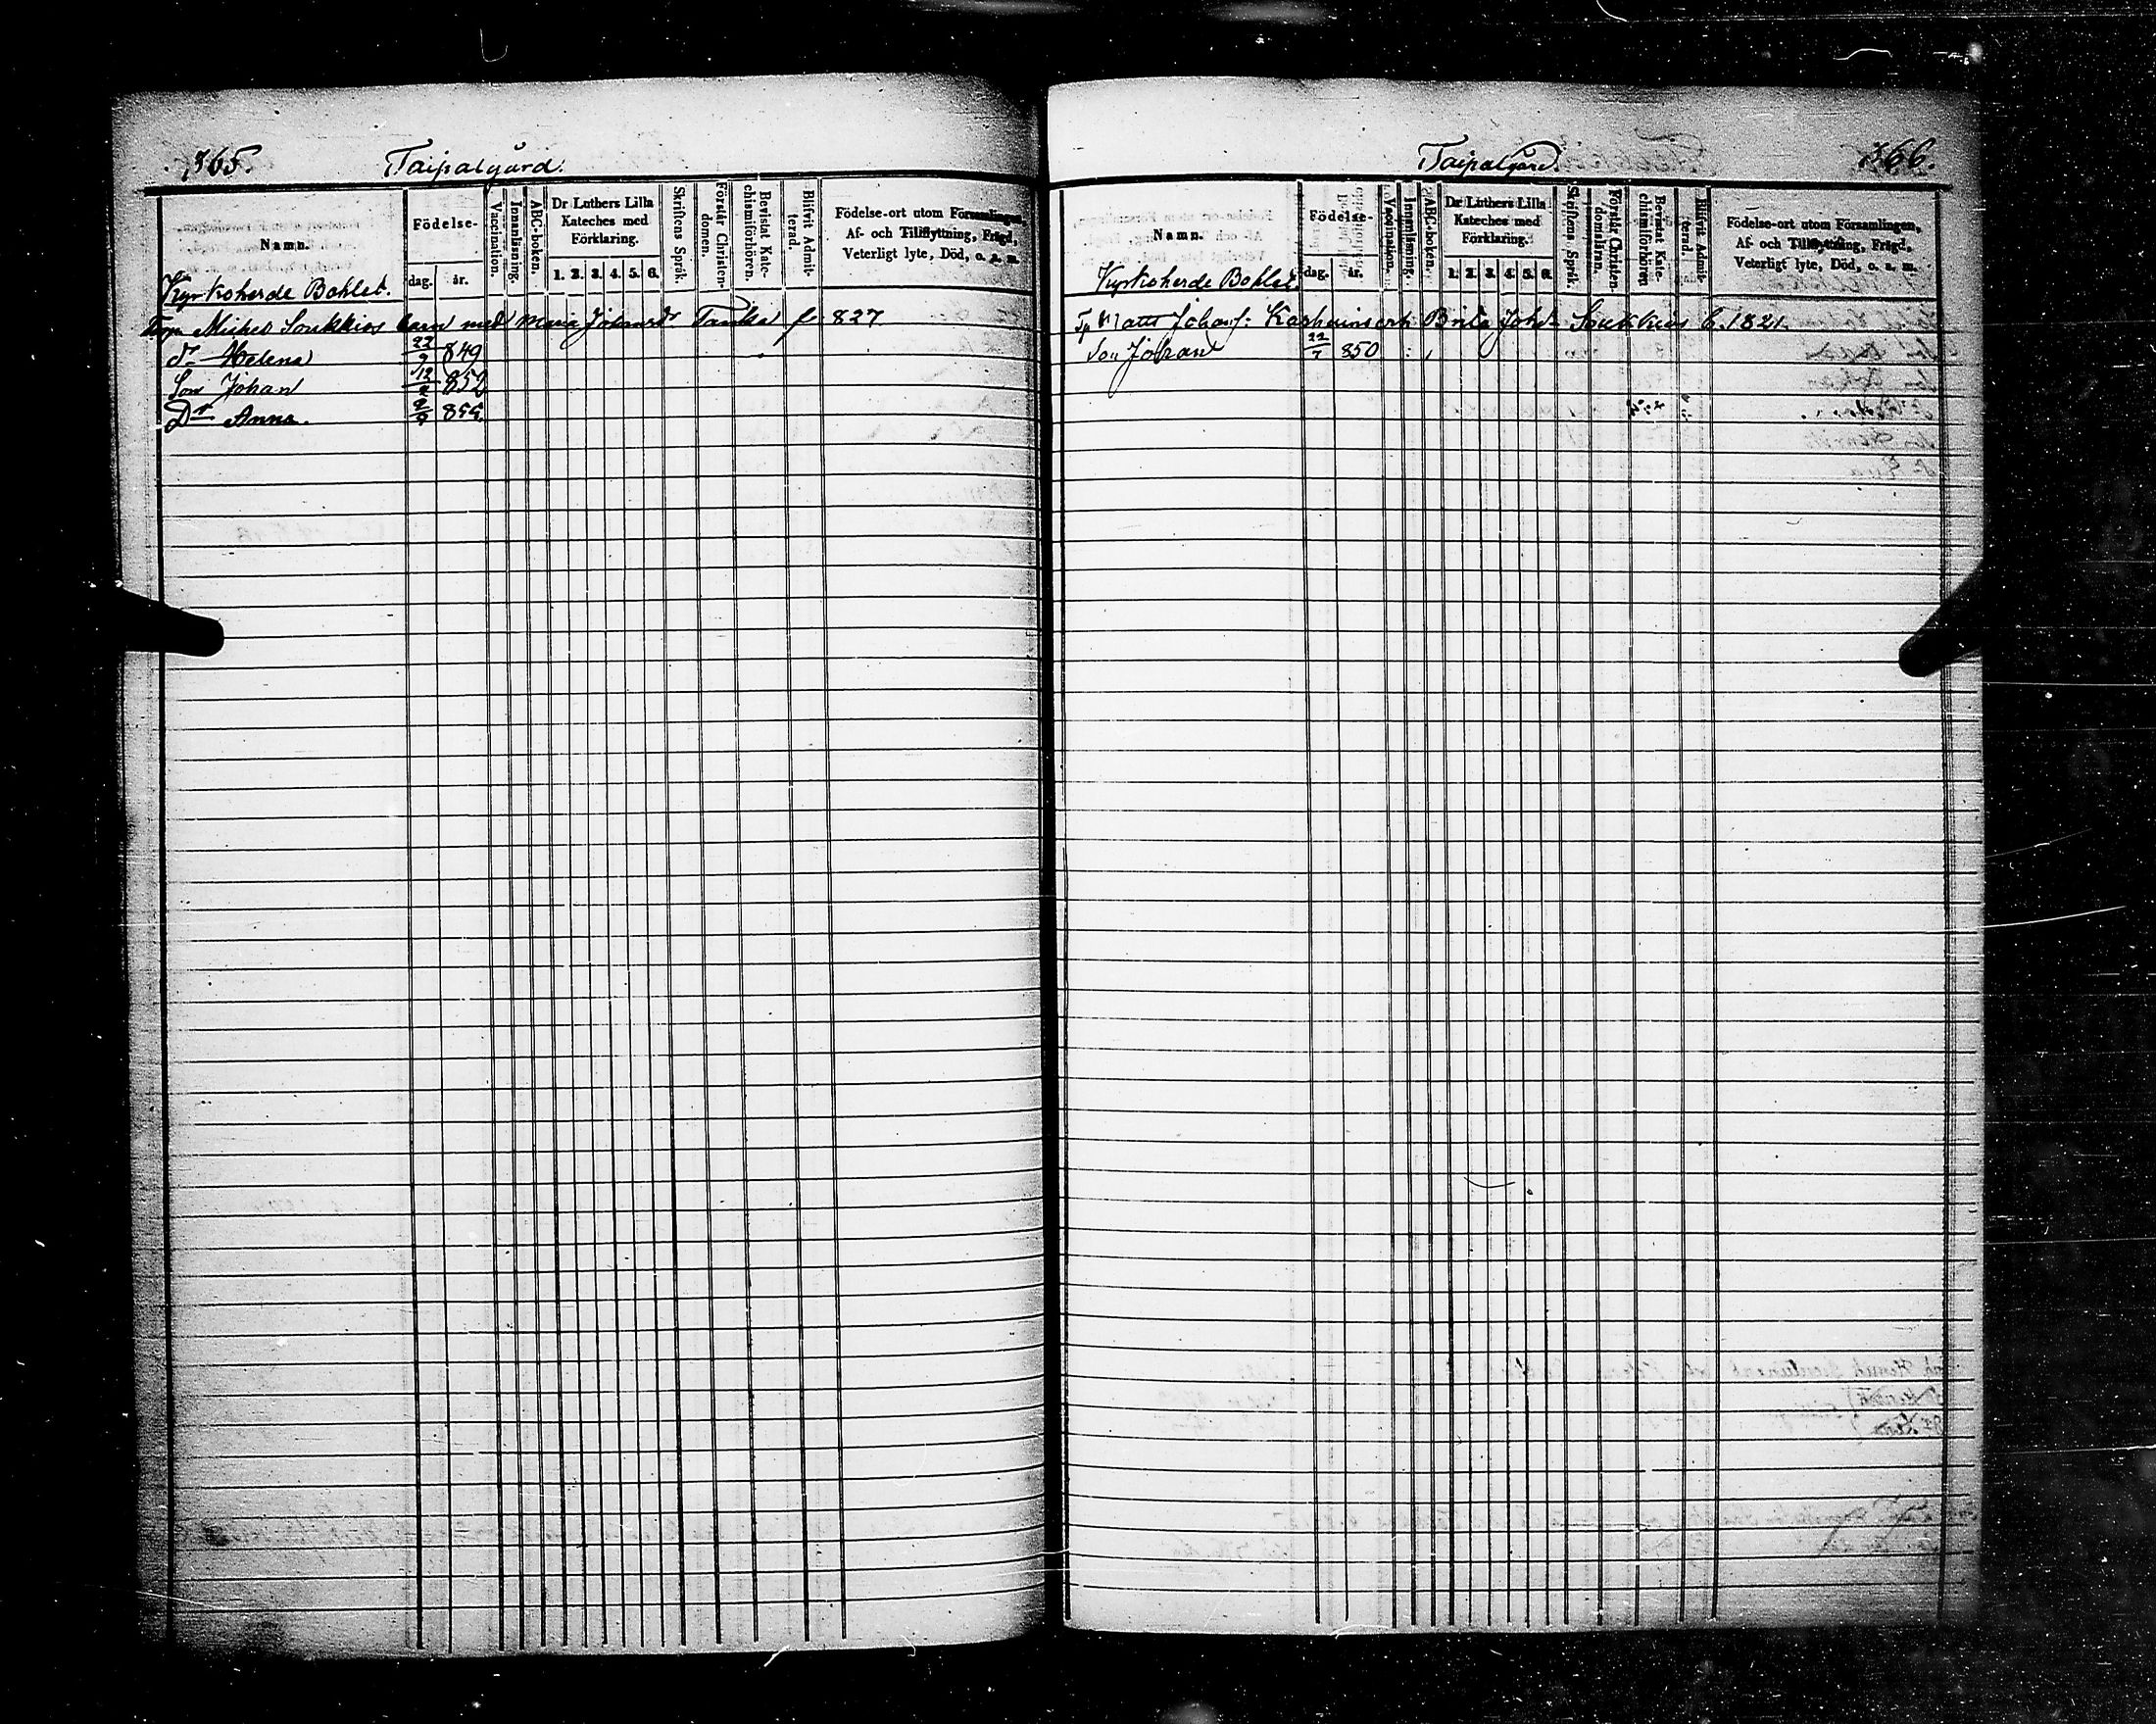 365. Taipalgård.
Namn.
Födelse-
dag. år.
Vaccination.
Innanläsning.
ABC-boken.
Dr Luthers Lilla Kateches med Förklaring.
1. 2. 3. 4. 5. 6.
Skriftens Språk.
Förstår Christen-domen.
Bevistat Kate-chismiförhören.
Blifvit Admit-terad.
Födelse-ort utom Församlingen,
Af- och Tillflyttning, Frägd,
Veterligt lyte, Död, o. s. m.
Kyrkoherde Bohlet.
Michel Soukkios barn med Maria Johansdr Tanska f. 827
dr Helena 22/9 849
Son Johan 12/2 852
Dr Anna. 855.
Taipalgård. 366.
Namn.
Födelse-
dag. år.
Vaccination.
Innanläsning.
ABC-boken.
Dr Luthers Lilla Kateches med Förklaring.
1. 2. 3. 4. 5. 6.
Skriftens Språk.
Förstår Christen-domsläran.
Bevistat Kate-chismiförhören
Blifvit Admit-terad.
Födelse-ort utom Församlingen,
Af- och Tillflyttning, Frägd,
Veterligt lyte, Död, o. s. m.
Kyrkoherde Bohlet.
Matts Johans: Brita Johd Soukkios f. 1821.
Son Johan 22/7 850